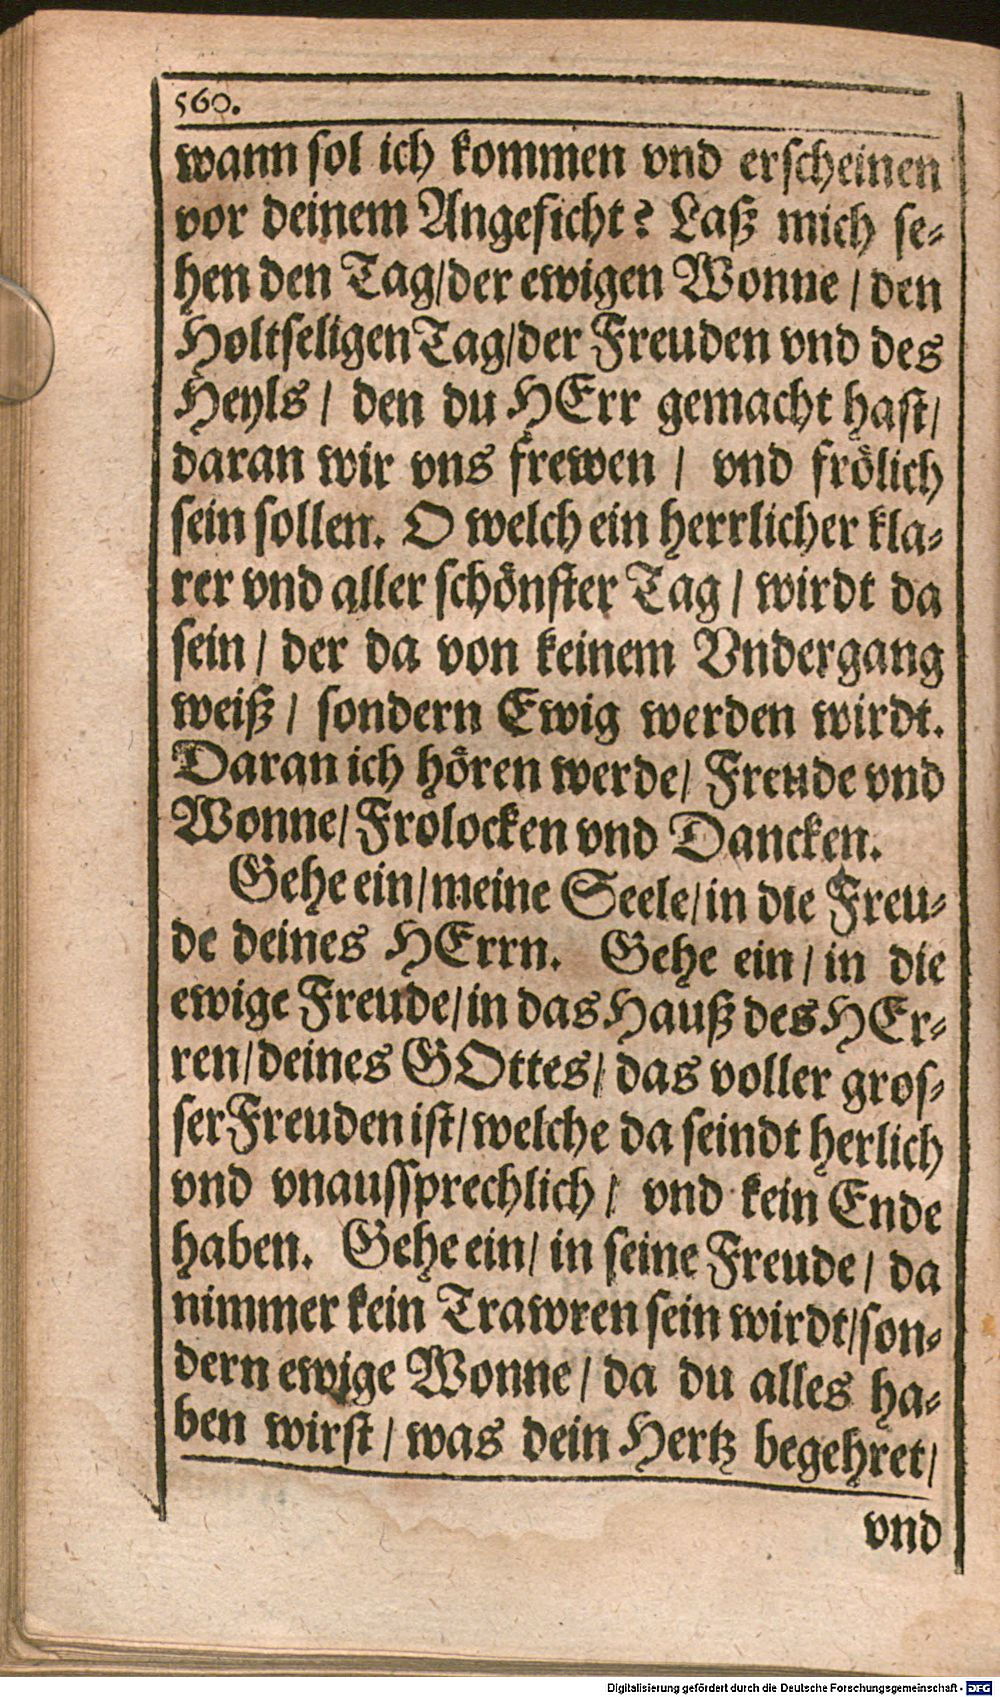 560.
wann sol ich kommen vnd erscheinen
vor deinem Angesicht? Laß mich se-
hen den Tag/der ewigen Wonne / den
Holtseligen Tag/der Freuden vnd des
Heyls / den du HErr gemacht hast/
daran wir vns frewen / vnd frölich
sein sollen. O welch ein herrlicher kla-
rer vnd aller schönster Tag / wirdt da
sein / der da von keinem Vndergang
weiß / sondern Ewig werden wirdt.
Daran ich hören werde/ Freude vnd
Wonne/ Frolocken vnd Dancken.
Gehe ein/meine Seele/in die Freu-
de deines HErrn. Gehe ein / in die
ewige Freude/in das Hauß des HEr-
ren/deines GOttes/ das voller gros-
ser Freuden ist/welche da seindt herlich
vnd vnaussprechlich / vnd kein Ende
haben. Gehe ein/ in seine Freude / da
nimmer kein Trawren sein wirdt/son-
dern ewige Wonne / da du alles ha-
ben wirst / was dein Hertz begehret/
vnd
Digitalisierung gefördert durch die Deutsche Forschungsgemeinschaft - DFG